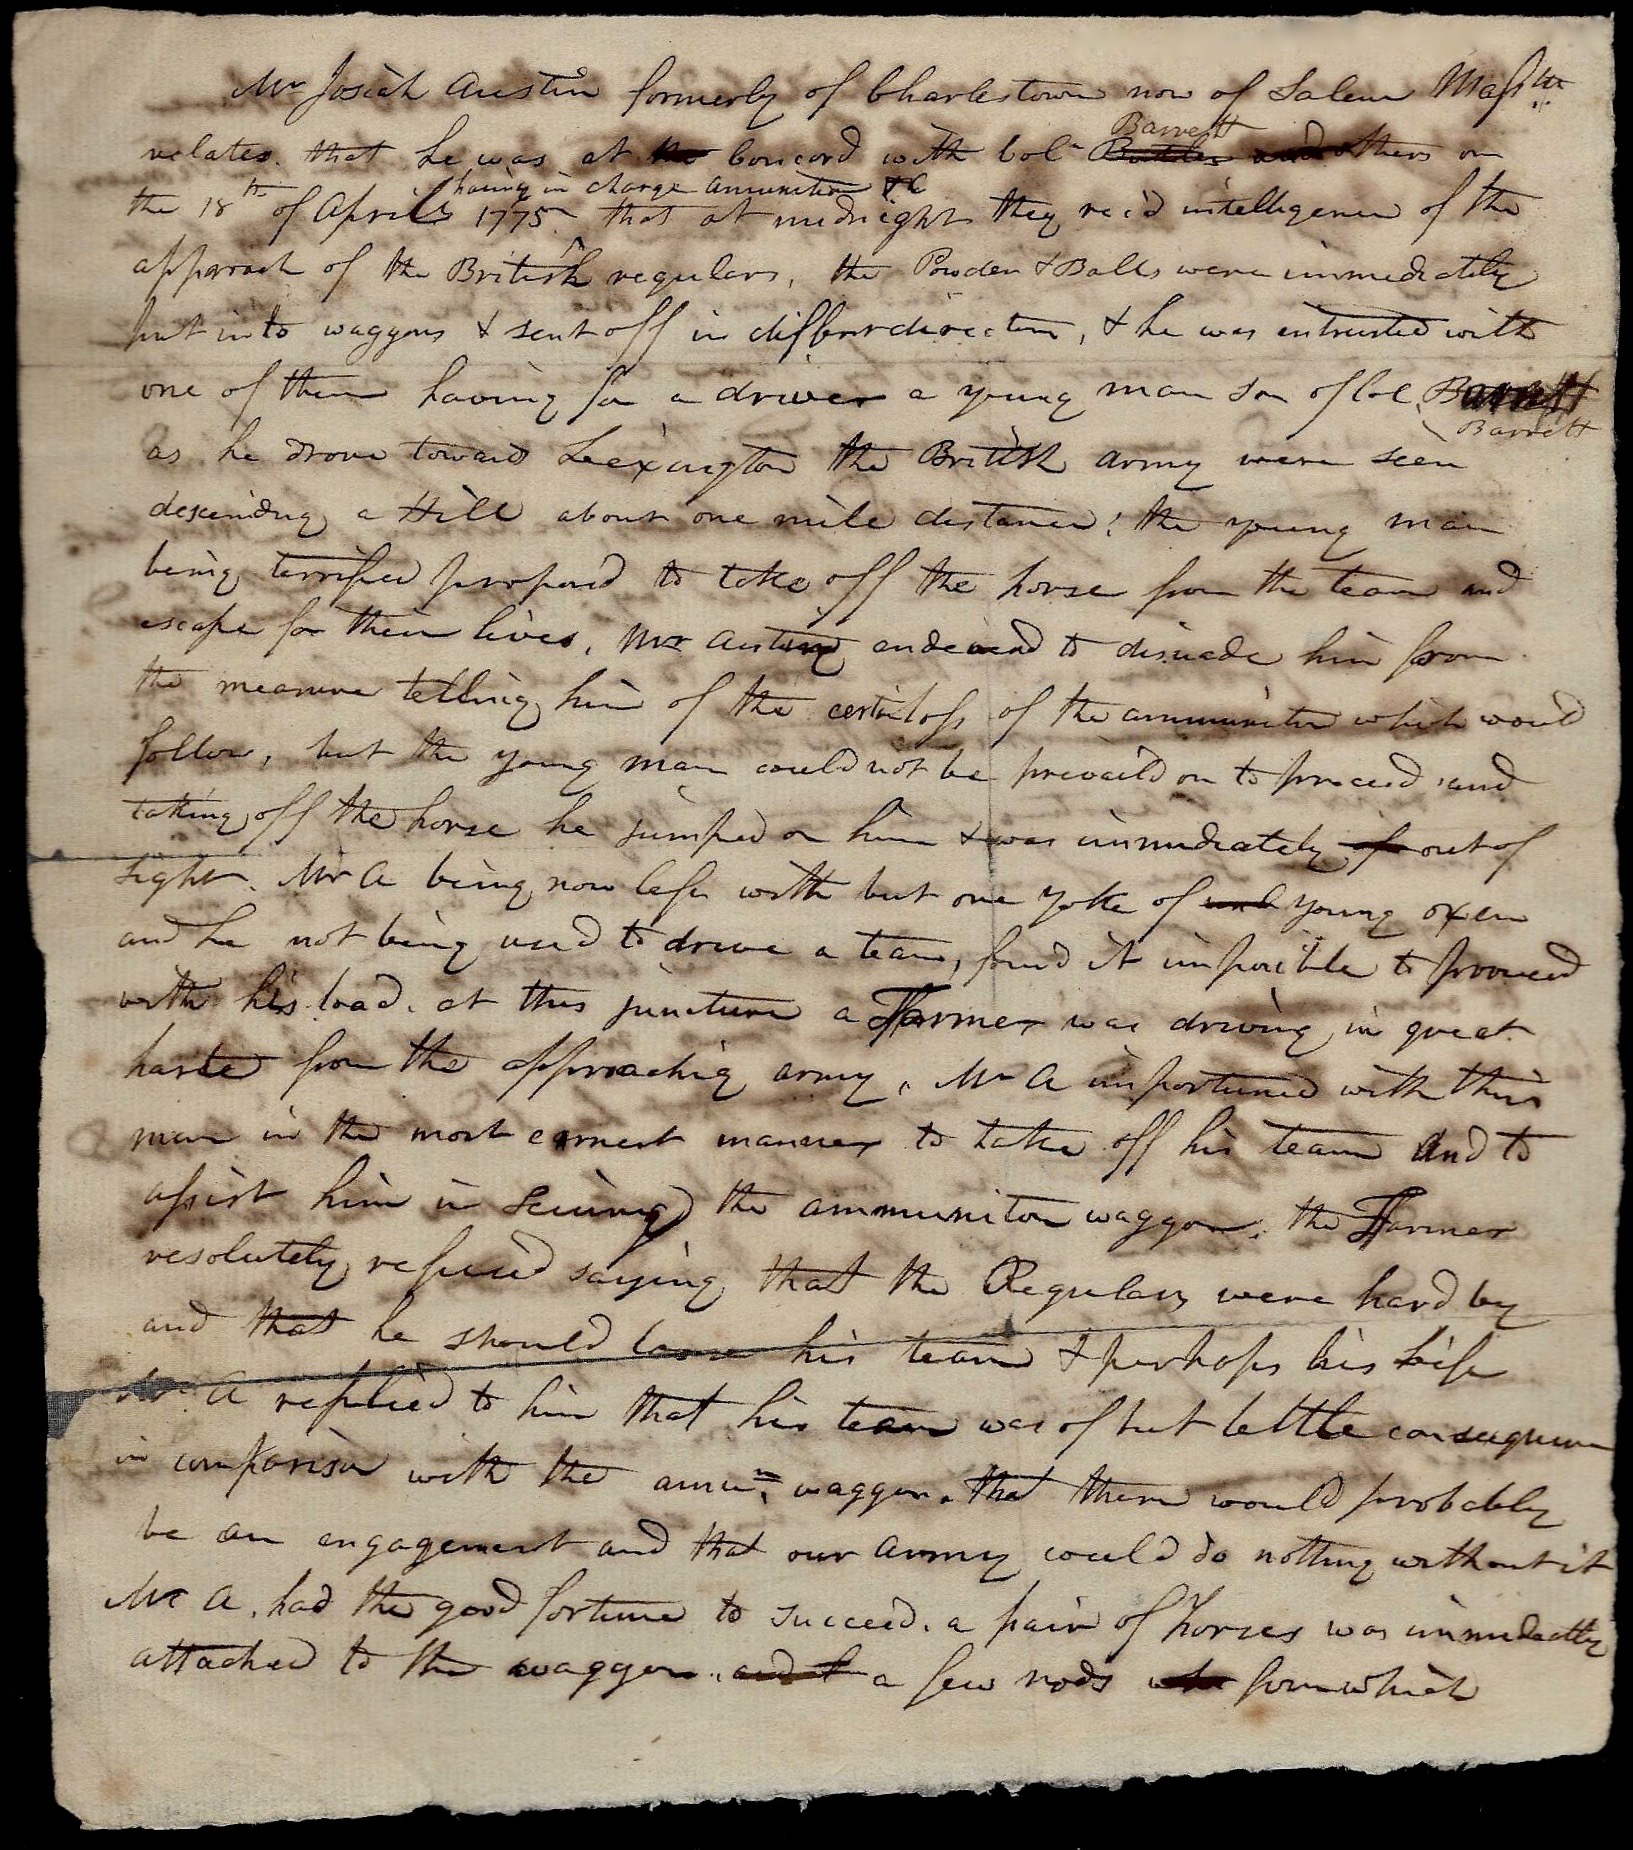 Mr Josiah Austin formerly of Charlestown now of Salem Massts
Barrett
relates that he was at the Concord with Col Butler and others on
having in charge amunition &c
the 18th of April 1775 that at midnight they rec'd intelligence of the
approach of the British regulars, the Powder & Balls were immediately
put into waggons & sent off in differnt direction, & he was entrusted with
one of them having for a driver a young man son of Col Barrett
Barrett
as he drove towards Lexington the British army were seen
descending a Hill about one mile distance: the young man
being terrified propos'd to take off the horse from the team and
escape for their lives, Mr Austin endeavord to disuade him from
the measure telling him of the certain loss of the ammunition which would
follow, but the young man could not be prevaild on to proceed, and
taking off the horse he jumped on him & was immediately of out of
sight. Mr A being now left with but one yoke of young oxen
and he not being used to drive a team, found it impossible to proceed
with his load. at this juncture a Farmer was driving in great
haste from the approaching army, Mr A importuned with this
man in the most earnest manner to take off his team and to
assist him in saving the ammunition waggon. the Farmer
resolutely refused saying that the Regulars were hard by
and that he should loose his team & perhaps his life
Mr A replied to him that his team was of but little consequence
in comparison with the amun. waggon. that there would probably
be an engagement and that our army could do nothing without it
Mr A. had the good fortune to succeed. a pair of horses was immediately
attached to the waggon. and a few rods from which